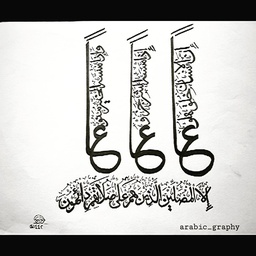 إِنَّ الْإِنسَانَ خُلِقَ هَلُوعًا
إِذَا مَسَّهُ الشَّرُّ جَزُوعًا
وَإِذَا مَسَّهُ الْخَيْرُ مَنُوعًا
إِلَّا الْمُصَلِّينَ الَّذِينَ هُمْ عَلَى صَلَاتِهِمْ دَائِمُونَ
arabic_graphy